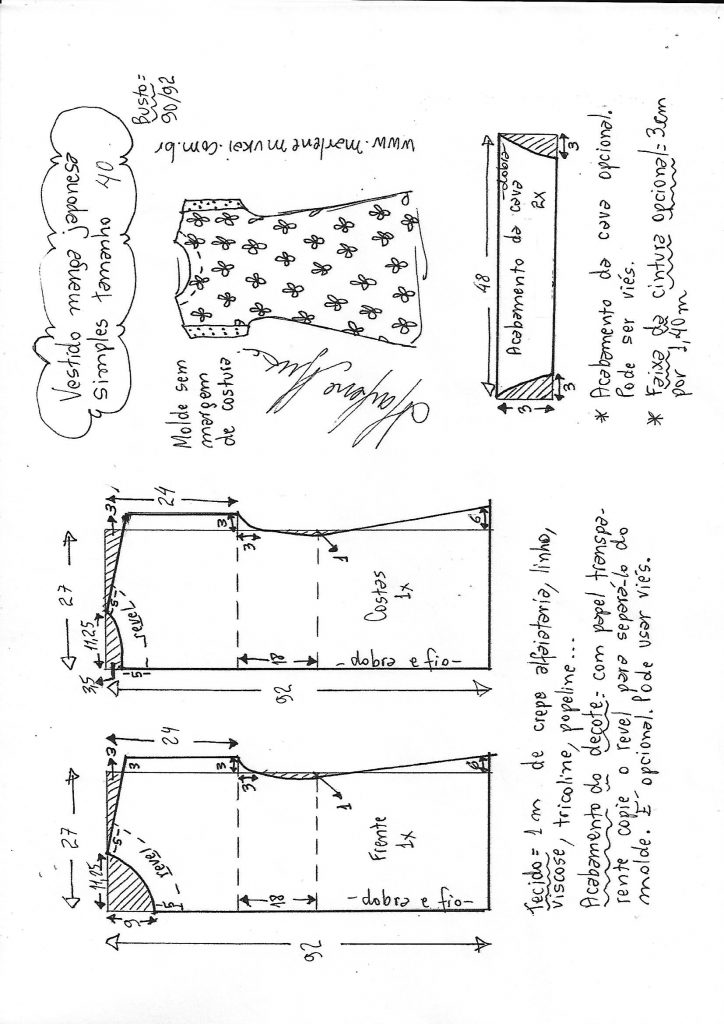 Vestido manga japonesa
simples tamanho 40
Busto=
90/92
www.marlenemukai.com.br
Molde sem
margem
de costura
dobra
Acabamento da cava
2x
48
3
3
3
* Acabamento da cava opcional.
Pode ser viés.
* Faixa da cintura opcional=3cm
por 1,40m
27
11,25
3,5
3
24
5
revel
5
3
3
18
1
6
Costas
1x
dobra e fio
92
27
11,25
9
3
24
5
revel
5
3
3
3
18
1
6
Frente
1x
dobra e fio
92
Tecido= 1m de crepe alfaiataria, linho,
viscose, tricoline, popeline...
Acabamento do decote= com papel transpa-
rente copie o revel para separá-lo do
molde. É opcional. Pode usar viés.